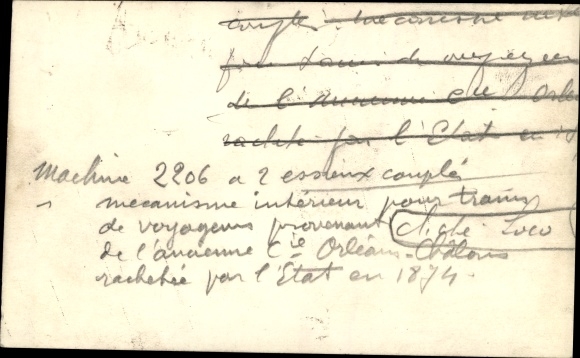 couplés mécanisme
pour trains de voyageurs
de l'ancienne Cie Orlé
rachetée par l'Etat en
Machine 2206 a 2 essieux couplé
- mecanisme intérieur pour trains
de voyageurs provenant cliché Loco
de l'ancienne Cie Orléans-Châlons
rachetée par l'Etat en 1874.